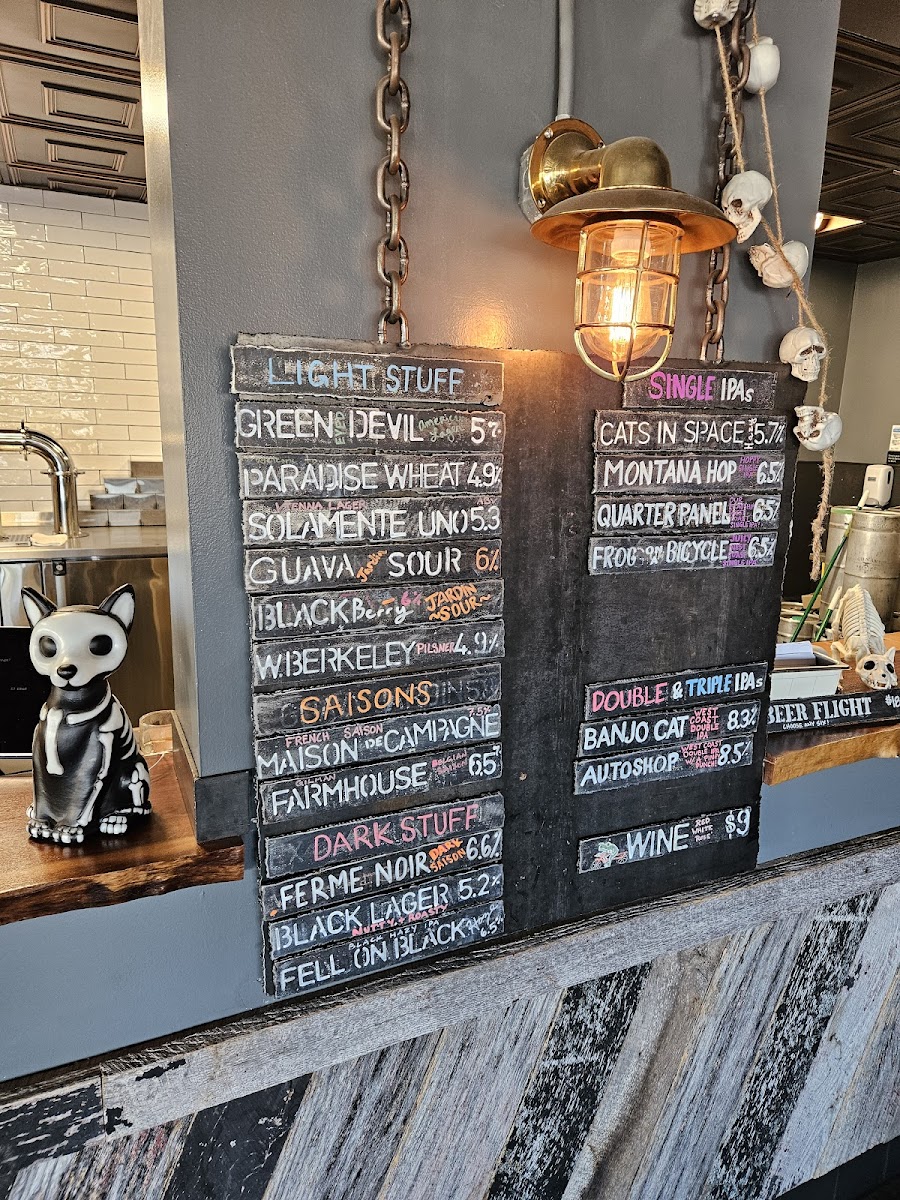 LIGHT STUFF
GREEN DEVIL 5%
PARADISE WHEAT 4.9%
VIENNA LAGER
SOLAMENTE UNO 5.3
GUAVA Jardin SOUR 6%
BLACKBerry 6% JARDIN ~SOUR~
W.BERKELEY PILSNER 4.9%
SAISONS
FRENCH SAISON 7.5%
MAISON DE CAMPAGNE
GILMAN
FARMHOUSE BELGIAN SAISON 6.5%
DARK STUFF
FERME NOIR DARK SAISON 6.6%
BLACK LAGER 5.2%
NUTTY + ROASTY
BLACK HAZY IPA
FELL ON BLACK 6.5%
SINGLE IPAs
CATS IN SPACE 5.7%
MONTANA HOP 6.5%
QUARTER PANEL 6.5%
FROG ON A BICYCLE 6.5%
DOUBLE & TRIPLE IPAs
BANJO CAT WEST COAST DOUBLE IPA 8.3%
AUTOSHOP WEST COAST DOUBLE IPA 8.5%
WINE RED WHITE ROSE $9
BEER FLIGHT
CHOOSE ANY SIX!